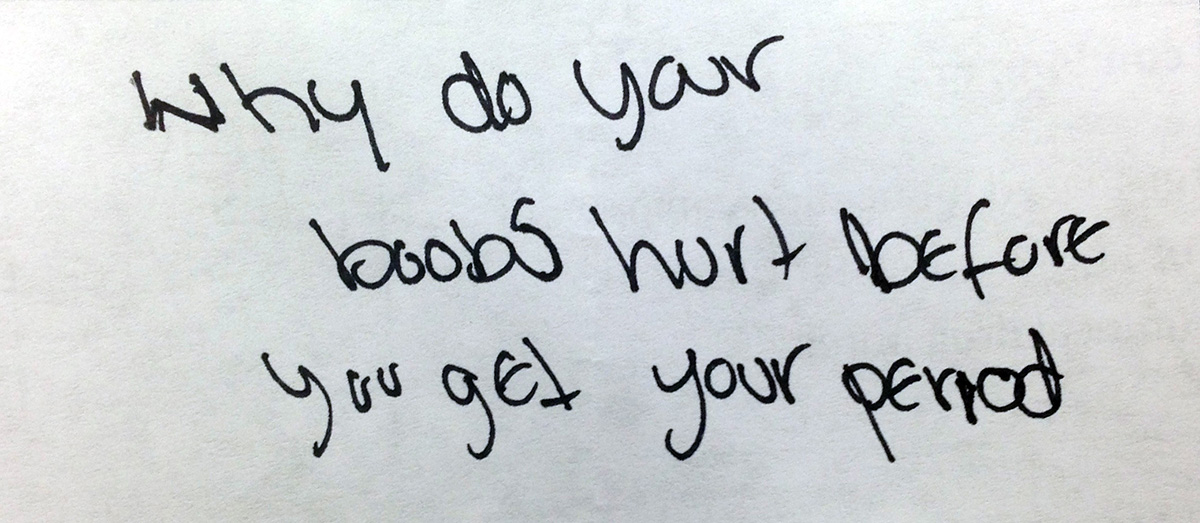 Why do your
boobs hurt before
you get your period